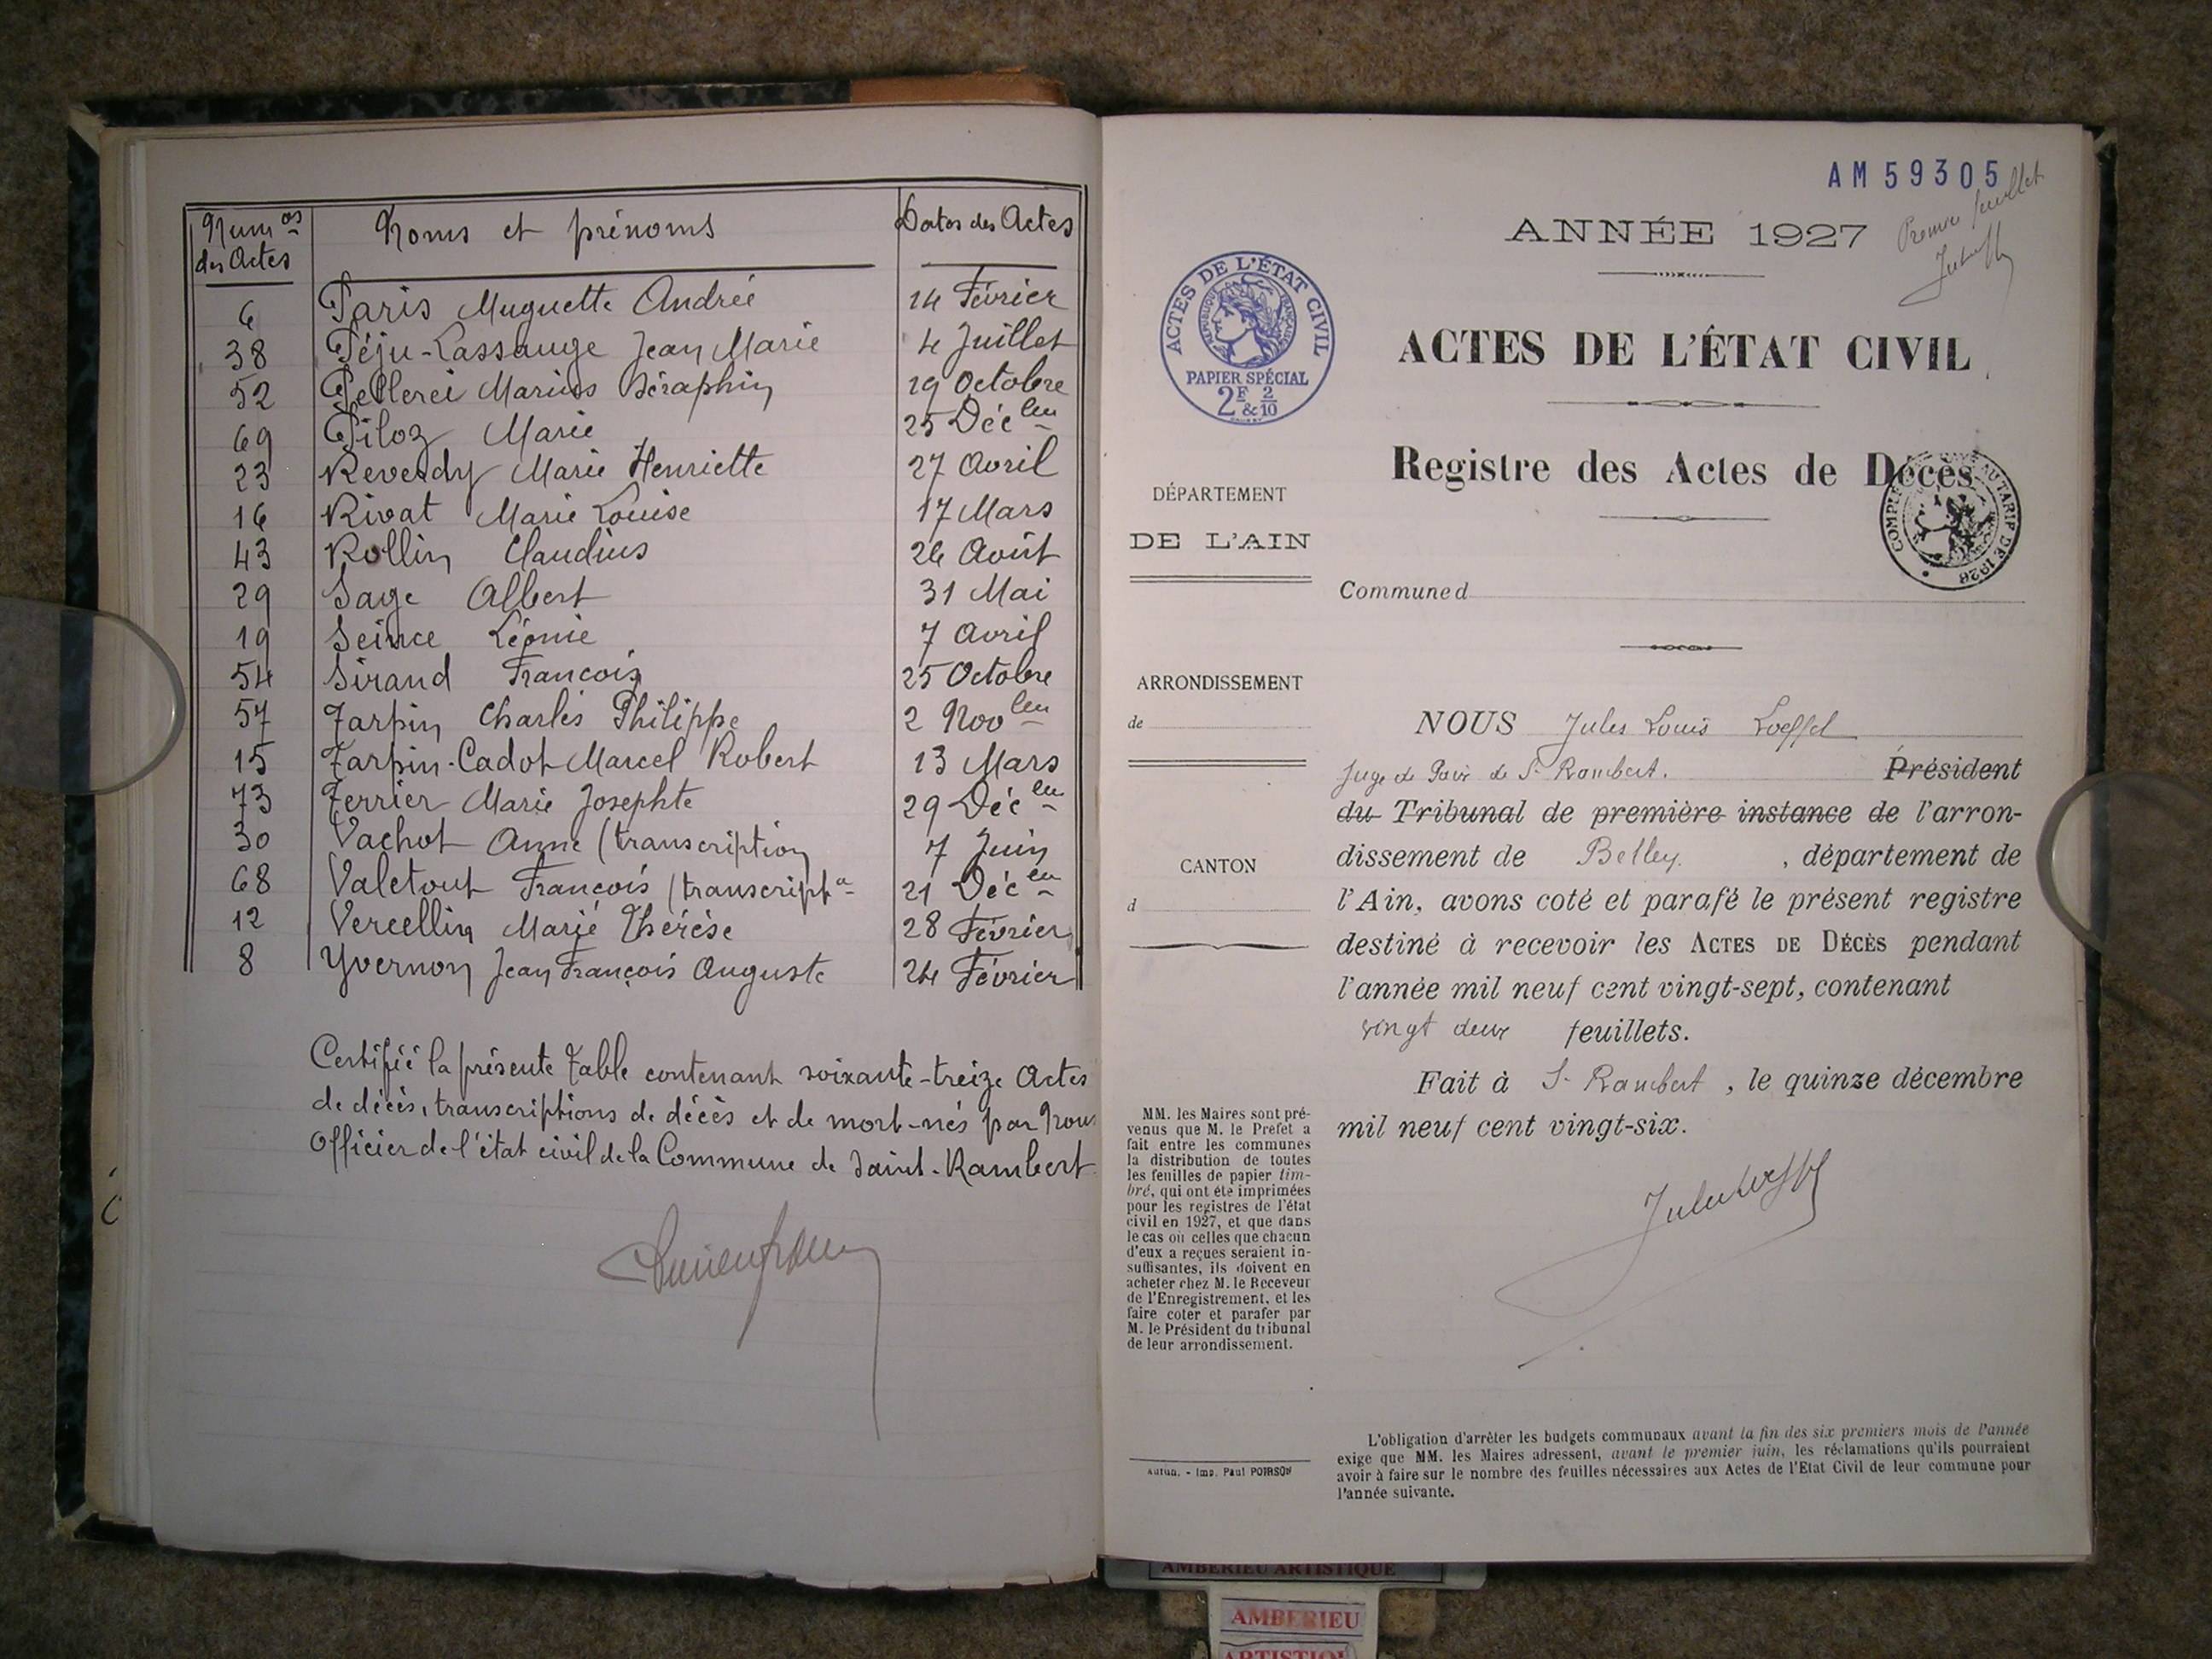 Num os des Actes
Noms et prénoms
Dates des Actes
6 Paris Muguette Andrée 14 Février
38 Péju-Lassauge Jean Marie 4 Juillet
52 Pellerei Marius Séraphin 19 Octobre
69 Piloz Marie 25 Déc bre
23 Reverdy Marie Henriette 27 Avril
16 Rivat Marie Louise 17 Mars
43 Rollin Claudius 26 Août
29 Sage Albert 31 Mai
19 Seince Léonie 7 Avril
54 Sirand François 25 Octobre
57 Tarpin Charles Philippe 2 Nov bre
15 Tarpin-Cadot Marcel Robert 13 Mars
73 Terrier Marie Josephte 29 Déc bre
30 Vachot Anne (transcription 7 Juin
68 Valetout François (transcript on 21 Déc bre
12 Vercellin Marie Thérèse 28 Février
8 Yvernon Jean François Auguste 24 Février
Certifié la présente Table contenant soixante-treize Actes
de décès, transcriptions de décès et de mort-nés par Nous
Officier de l'état civil de la Commune de Saint-Rambert
AM 59305
Premier feuillet
ANNÉE 1927
ACTES DE L'ÉTAT CIVIL
REPUBLIQUE FRANÇAISE
PAPIER SPÉCIAL
2F & 2/10
ACTES DE L'ÉTAT CIVIL
Registre des Actes de Décès
AU TARIF DE 1926
DÉPARTEMENT
DE L'AIN
Commune d
ARRONDISSEMENT
de
CANTON
d
NOUS Jules Louis Loeffel
Juge de Paix de St Rambert. Président
du Tribunal de première instance de l'arron-
dissement de Belley. , département de
l'Ain, avons coté et parafé le présent registre
destiné à recevoir les ACTES DE DÉCÈS pendant
l'année mil neuf cent vingt-sept, contenant
vingt deux feuillets.
Fait à St Rambert , le quinze décembre
mil neuf cent vingt-six.
MM. les Maires sont pré-
venus que M. le Préfet a
fait entre les communes
la distribution de toutes
les feuilles de papier tim-
bré, qui ont été imprimées
pour les registres de l'état
civil en 1927, et que dans
le cas où celles que chacun
d'eux a reçues seraient in-
suffisantes, ils doivent en
acheter chez M. le Receveur
de l'Enregistrement, et les
faire coter et parafer par
M. le Président du tribunal
de leur arrondissement.
Autun. - Imp. Paul POIRSON
L'obligation d'arrêter les budgets communaux avant la fin des six premiers mois de l'année
exige que MM. les Maires adressent, avant le premier juin, les réclamations qu'ils pourraient
avoir à faire sur le nombre des feuilles nécessaires aux Actes de l'Etat Civil de leur commune pour
l'année suivante.
AMBERIEU ARTISTIQUE
AMBERIEU
ARTISTIQU